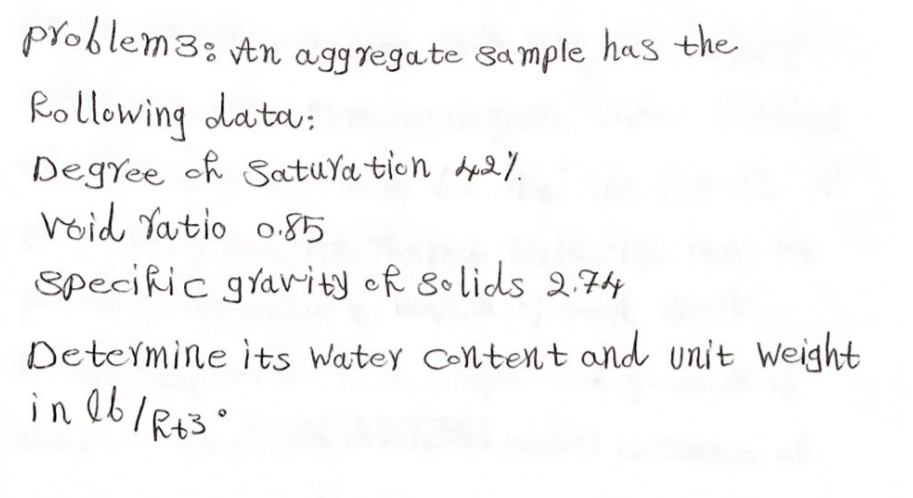 problem3: An aggregate sample has the
following data:
Degree of Saturation 42%
void ratio 0.85
specific gravity of solids 2.74
Determine its water content and unit weight
in lb/ft3.